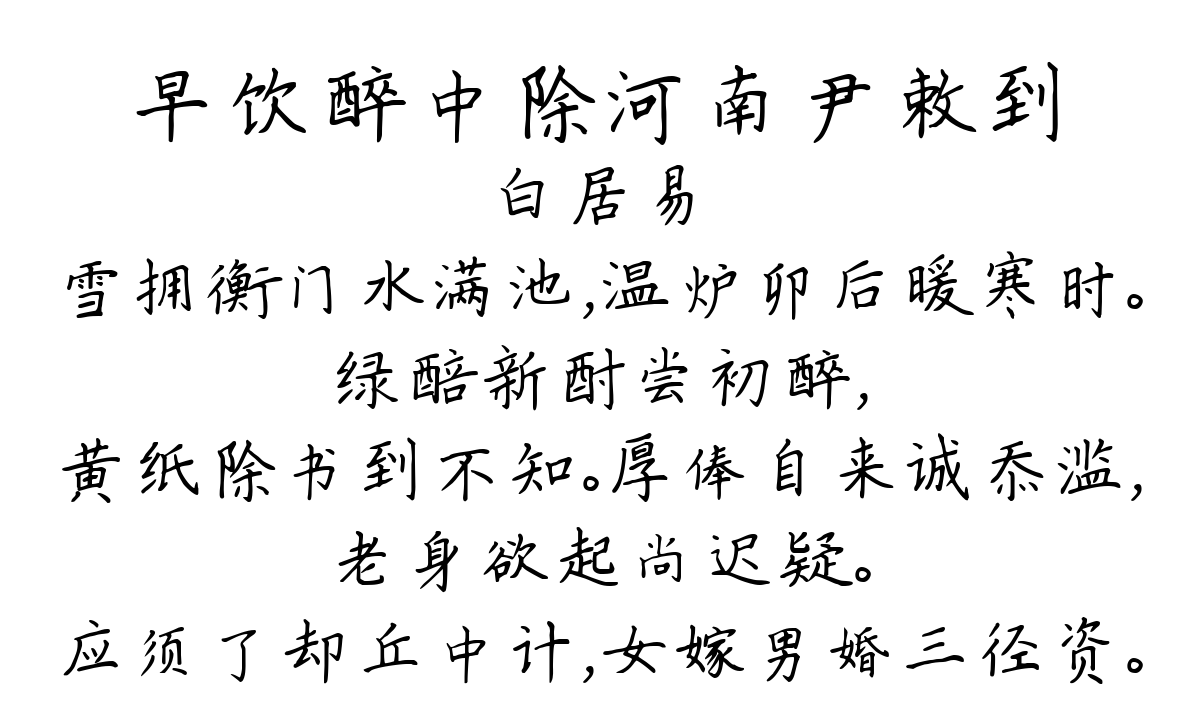 早饮醉中除河南尹敕到
白居易
雪拥衡门水满池,温炉卯后暖寒时。
绿醅新酎尝初醉,
黄纸除书到不知。厚俸自来诚忝滥,
老身欲起尚迟疑。
应须了却丘中计,女嫁男婚三径资。